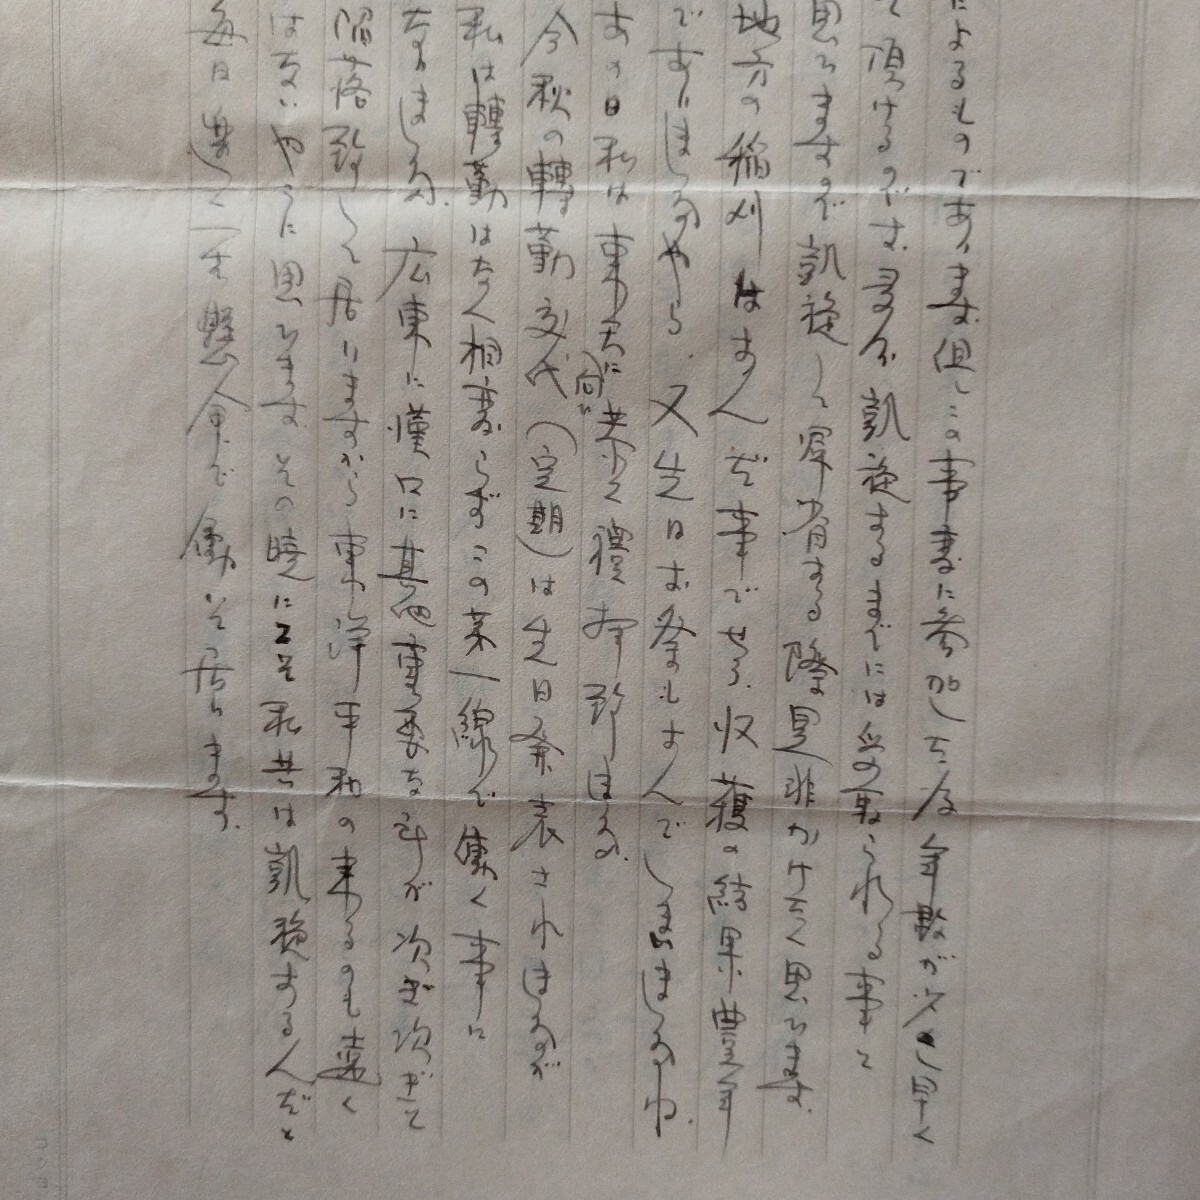 によるものであります但しこの事変に参加した為年数が少し早く
て頂けるのです。多分凱旋するまでには受取られる事と
思ひますので凱旋して帰省する際是非かけたく思ひます。
地方の稲刈はすんだ事でせう、収穫の結果豊年
でありましたやら、又先日お祭もすんでしまいましたね。
あの日私は東方に向ひ共々礼拝致しました。
今秋の轉勤交代(定期)は先日発表されましたが
私は轉勤はなく相変らずこの第一線で働く事に
なりました。広東に漢口に其他重要な所が次ぎ次ぎと
陥落致して居りますから東洋平和の来るのも遠く
はないやうに思ひます その暁にこそ私共は凱旋するんだと
毎日楽しく一生懸命で働いて居ります。
コクヨ